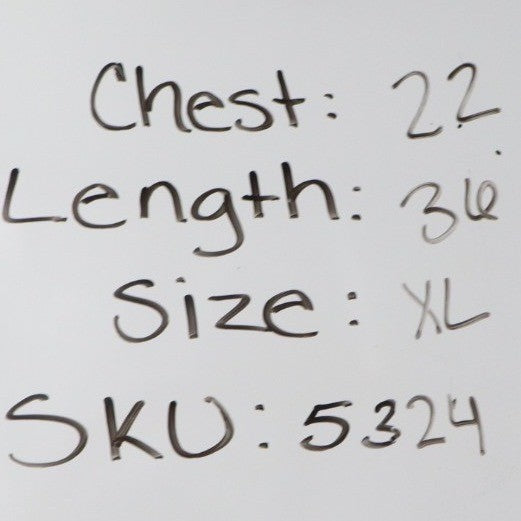 Chest: 22
Length: 36
Size: XL
SKU: 5324